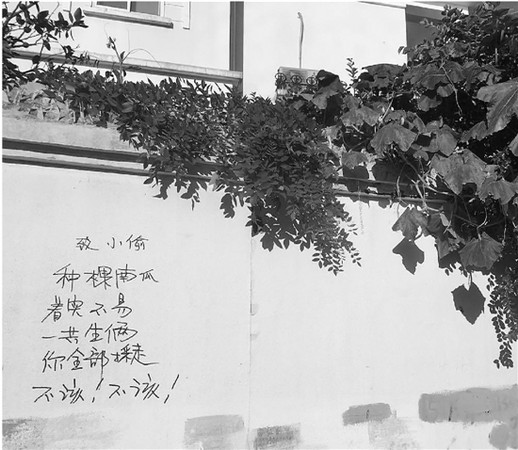 致小偷
种棵南瓜
着实不易
一共生俩
你全部摘走
不该！不该！